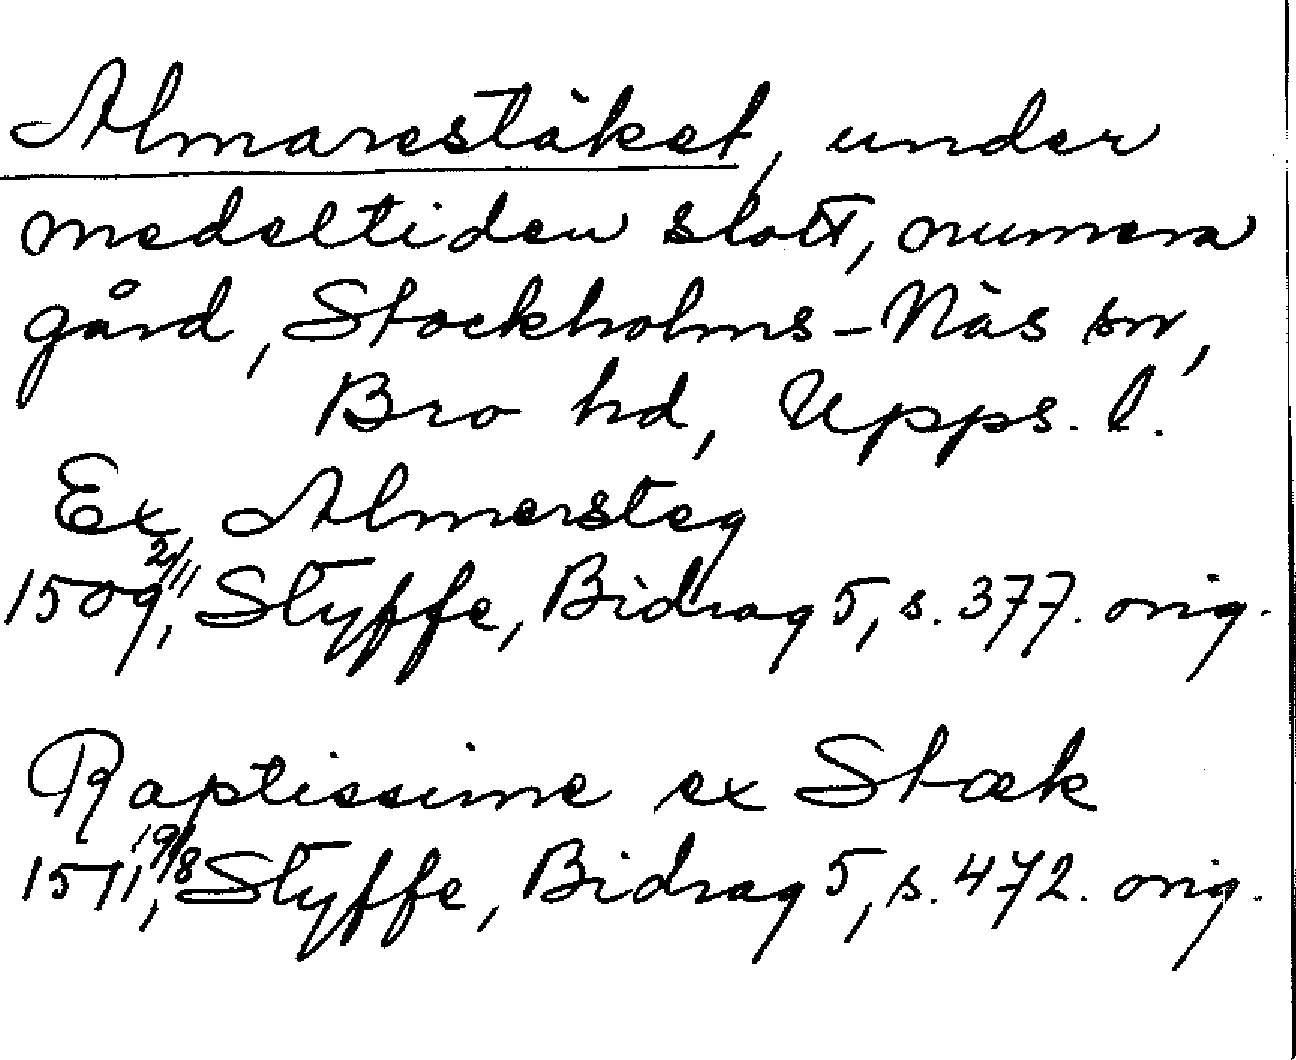 Almarestäket, under
medeltiden slott, numera
gård, Stockholms-Näs sn,
Bro hd, Upps. l.
Ex Almersteg
1509 2/11, Styffe, Bidrag 5, s. 377. orig.
Raptissime ex Stæk
1511, 19/8 Styffe, Bidrag 5, s. 472. orig.